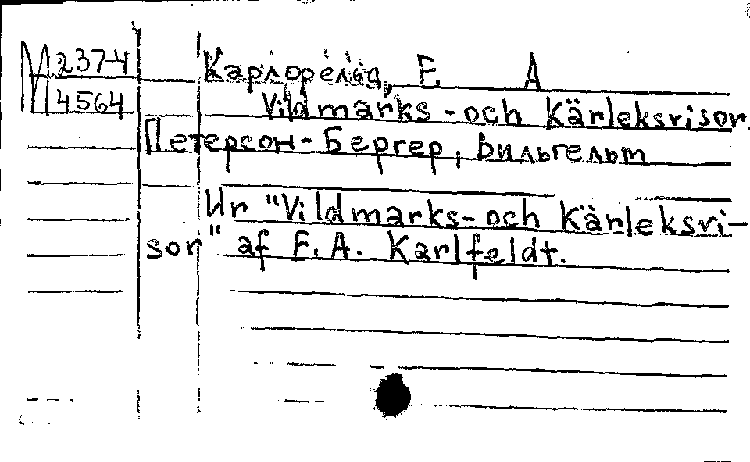 М 237-4 Е А
4564 Vildmarks - och Kärleksvisor.
Петерсон - Бергер, Вильгельм
Ur "Vildmarks- och Kärleksvi-
sor" af E. A. Karlfeldt.